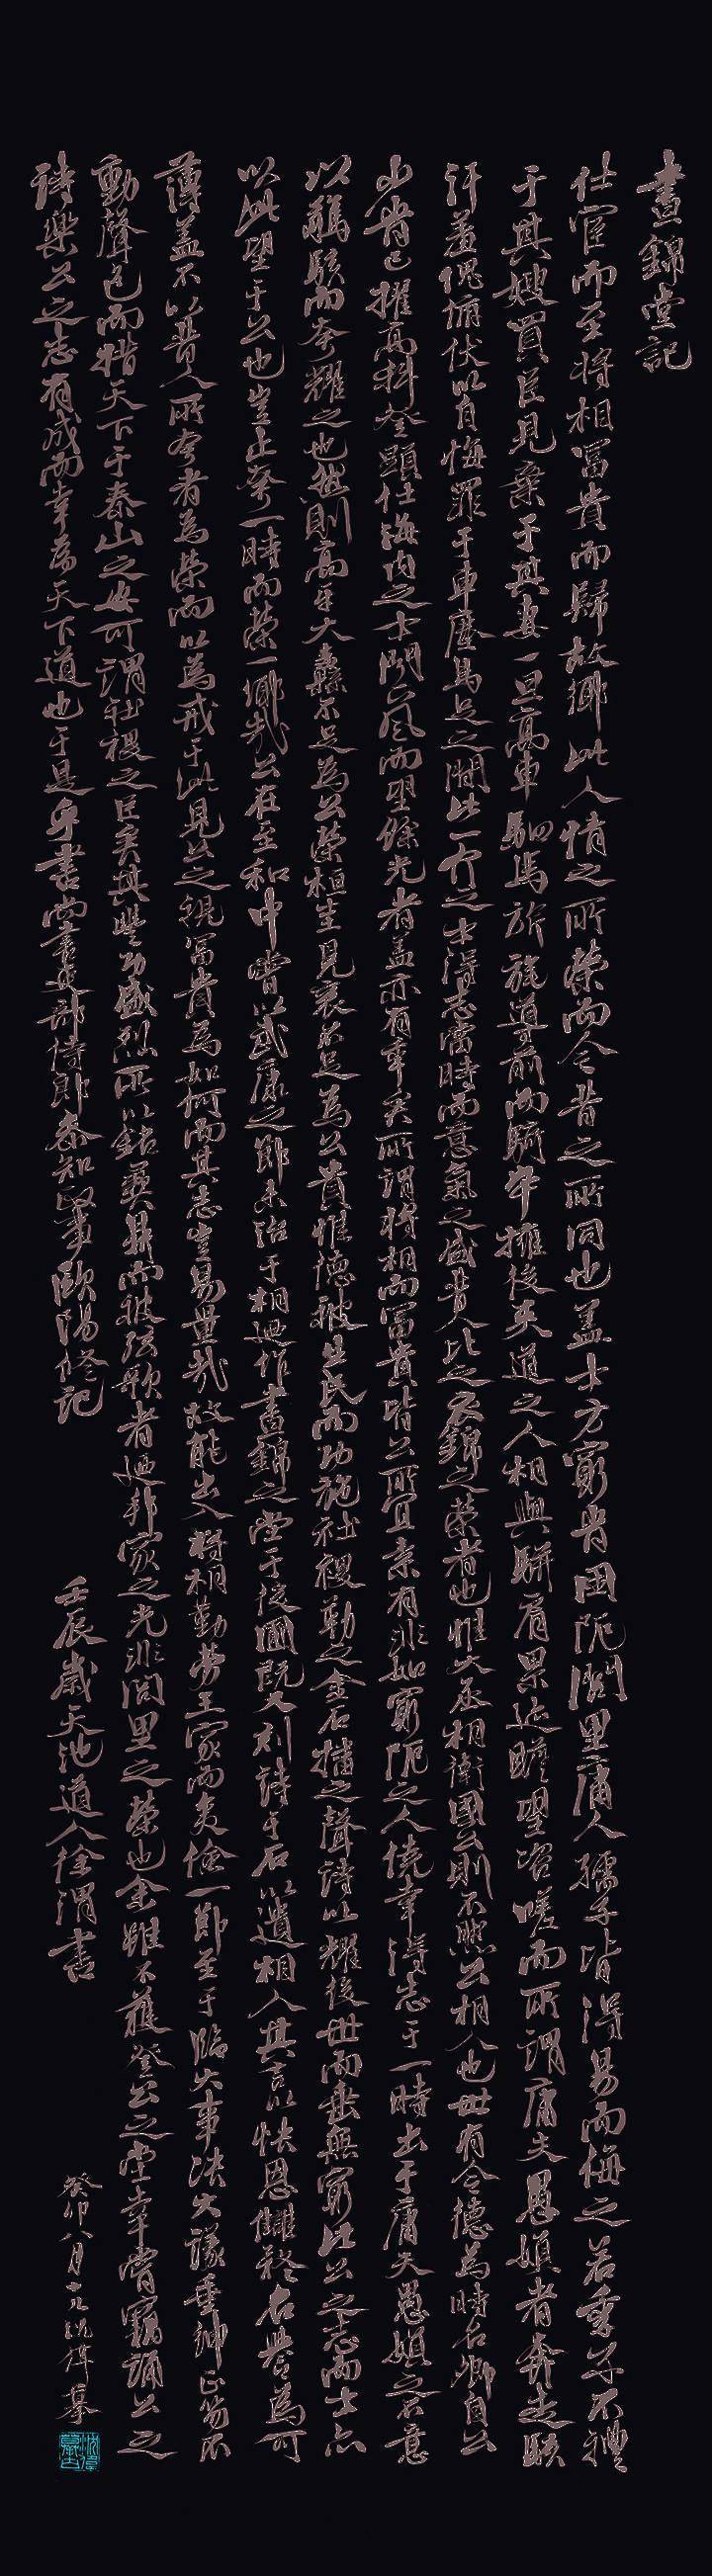 晝錦堂記
仕宦而至將相富貴而歸故鄉此人情之所榮而今昔之所同也蓋士方窮時困阨閭里庸人孺子皆得易而侮之若季子不禮
于其嫂買臣見棄于其妻一旦高車駟馬旗旄導前而騎卒擁後夾道之人相與駢肩累迹瞻望咨嗟而所謂庸夫愚婦者奔走駭
汗羞愧俯伏以自悔罪于車塵馬足之間此一介之士得志當時而意氣之盛昔人比之衣錦之榮者也惟大丞相衛國公則不然公相人也世有令德為時名卿自公
少時已擢高科登顯仕海內之士聞下風而望餘光者蓋亦有年矣所謂將相而富貴皆公所宜素有非如窮阨之人僥幸得志于一時出于庸夫愚婦之不意
以驚駭而夸耀之也然則高牙大纛不足為公榮桓圭冕袞不足為公貴惟德被生民而功施社稷勒之金石播之聲詩以耀後世而垂無窮此公之志而士亦
以此望于公也豈止夸一時而榮一鄉哉公在至和中嘗以武康之節來治于相迺作晝錦之堂于後圃既又刻詩于石以遺相人其言以快恩讎矜名譽為可
薄蓋不以昔人所夸者為榮而以為戒于此見公之視富貴為如何而其志豈易量哉故能出入將相勤勞王家而夷險一節至于臨大事決大議垂紳正笏不
動聲色而措天下于泰山之安可謂社稷之臣矣其豐功盛烈所以銘彝鼎而被弦歌者迺邦家之光非閭里之榮也余雖不獲登公之堂幸嘗竊誦公之
詩樂公之志有成而喜為天下道也于是乎書尚書吏部侍郎參知政事歐陽修記
壬辰歲天池道人徐渭書
癸卯八月